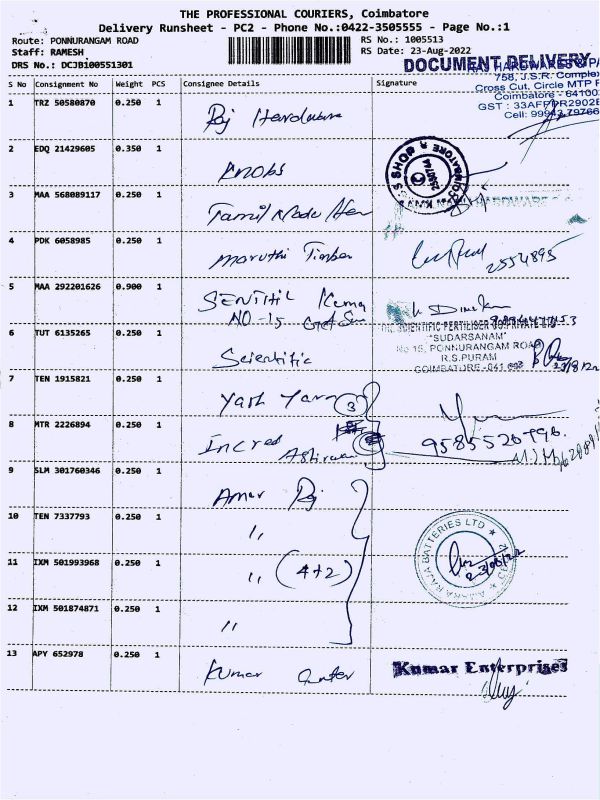 THE PROFESSIONAL COURIERS, Coimbatore
Delivery Runsheet - PC2 - Phone No.:0422-3505555 - Page No.:1
Route: PONNURANGAM ROAD
RS No.: 1005513
Staff: RAMESH
RS Date: 23-Aug-2022
DRS No.: DCJB100551301
DOCUMENT DELIVERY
758, J.S.R. Complex
Cross Cut, Circle MTP
Coimbatore - 64100
S No Consignment No Weight PCS Consignee Details Signature
1 TRZ 50580870 0.250 1 Raj Hardware
2 EDQ 21429605 0.350 1 KNOBS
3 MAA 568089117 0.250 1 Tamil Nadu
HARDWARES
4 PDK 6058985 0.250 1 Maruthi Timber
2554895
5 MAA 292201626 0.900 1 SENTHIL Kuma
NO-15
THE SCIENTIFIC FERTILISER CO. PRIVATE LTD
"SUDARSANAM"
No 15, PONNURANGAM ROAD
R.S.PURAM
COIMBATORE-641
6 TUT 6135265 0.250 1 Scientific
7 TEN 1915821 0.250 1 Yash Yarn 3
8 MTR 2226894 0.250 1 Incred
9585520796.
9 SLM 301760346 0.250 1 Amar Raj
10 TEN 7337793 0.250 1 ,,
11 IXM 501993968 0.250 1 ,, (4+2)
AMARA RAJA BATTERIES LTD
12 IXM 501874871 0.250 1 ,,
13 APY 652978 0.250 1 Kumar Enter
Kumar Enterprises